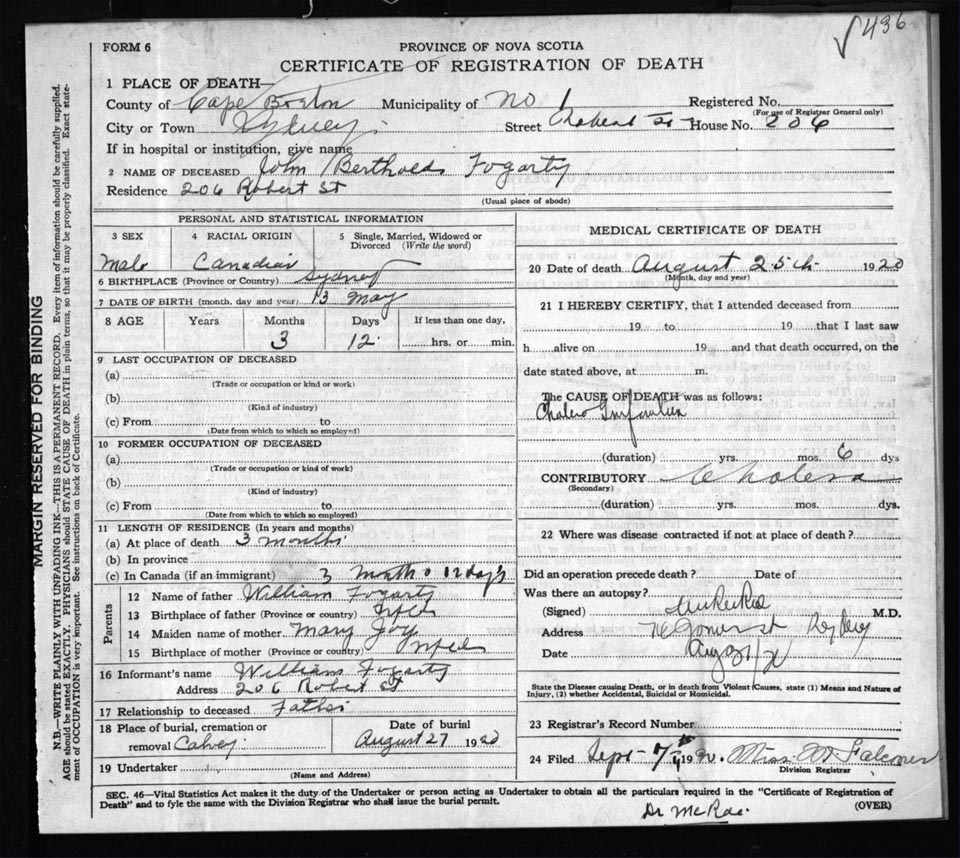 √436
FORM 6
PROVINCE OF NOVA SCOTIA
CERTIFICATE OF REGISTRATION OF DEATH
1 PLACE OF DEATH—
County of Cape Breton Municipality of No 1 Registered No.
(For use of Registrar General only)
City or Town Sydney Street Robert St House No. 206
If in hospital or institution, give name
2 NAME OF DECEASED John Fogarty
Residence 206 Robert St
(Usual place of abode)
PERSONAL AND STATISTICAL INFORMATION
3 SEX
4 RACIAL ORIGIN
5 Single, Married, Widowed or Divorced (Write the word)
Male Canadian
6 BIRTHPLACE (Province or Country) Sydney
7 DATE OF BIRTH (month, day and year) 13 May
8 AGE Years Months Days If less than one day,
3 12 hrs. or min.
9 LAST OCCUPATION OF DECEASED
(a)
(Trade or occupation or kind or work)
(b)
(Kind of industry)
(c) From to
(Date from which to which so employed)
10 FORMER OCCUPATION OF DECEASED
(a)
(Trade or occupation or kind of work)
(b)
(Kind of industry)
(c) From to
(Date from which to which so employed)
11 LENGTH OF RESIDENCE (In years and months)
(a) At place of death 3 months
(b) In province
(c) In Canada (if an immigrant) 3 months 12 days
Parents
12 Name of father William Fogarty
13 Birthplace of father (Province or country) Nfld
14 Maiden name of mother Mary Joy
15 Birthplace of mother (Province or country) Nfld
16 Informant's name William Fogarty
Address 206 Robert St
17 Relationship to deceased Father
18 Place of burial, cremation or Date of burial
removal Calvey August 27 1920
19 Undertaker
(Name and Address)
MEDICAL CERTIFICATE OF DEATH
20 Date of death August 25th 1920
(Month, day and year)
21 I HEREBY CERTIFY, that I attended deceased from
19 to 19 that I last saw
h alive on 19 and that death occurred, on the
date stated above, at m.
The CAUSE OF DEATH was as follows:
Cholera Infantum
(duration) yrs. mos. 6 dys
CONTRIBUTORY Cholera
(Secondary)
(duration) yrs. mos. dys.
22 Where was disease contracted if not at place of death?
Did an operation precede death? Date of
Was there an autopsy?
(Signed) M.D.
Address
Date Aug 31/20
State the Disease causing Death, or in death from Violent Causes, state (1) Means and Nature of
Injury, (2) whether Accidental, Suicidal or Homicidal.
23 Registrar's Record Number
24 Filed Sept 7th 1920. Miss M Falconer
Division Registrar
SEC. 46—Vital Statistics Act makes it the duty of the Undertaker or person acting as Undertaker to obtain all the particulars required in the "Certificate of Registration of
Death" and to fyle the same with the Division Registrar who shall issue the burial permit.
(OVER)
Dr McRae
MARGIN RESERVED FOR BINDING
N.B.—WRITE PLAINLY WITH UNFADING INK—THIS IS A PERMANENT RECORD. Every item of information should be carefully supplied.
AGE should be stated EXACTLY. PHYSICIANS should STATE CAUSE OF DEATH in plain terms, so that it may be properly classified. Exact state-
ment of OCCUPATION is very important. See instructions on back of Certificate.